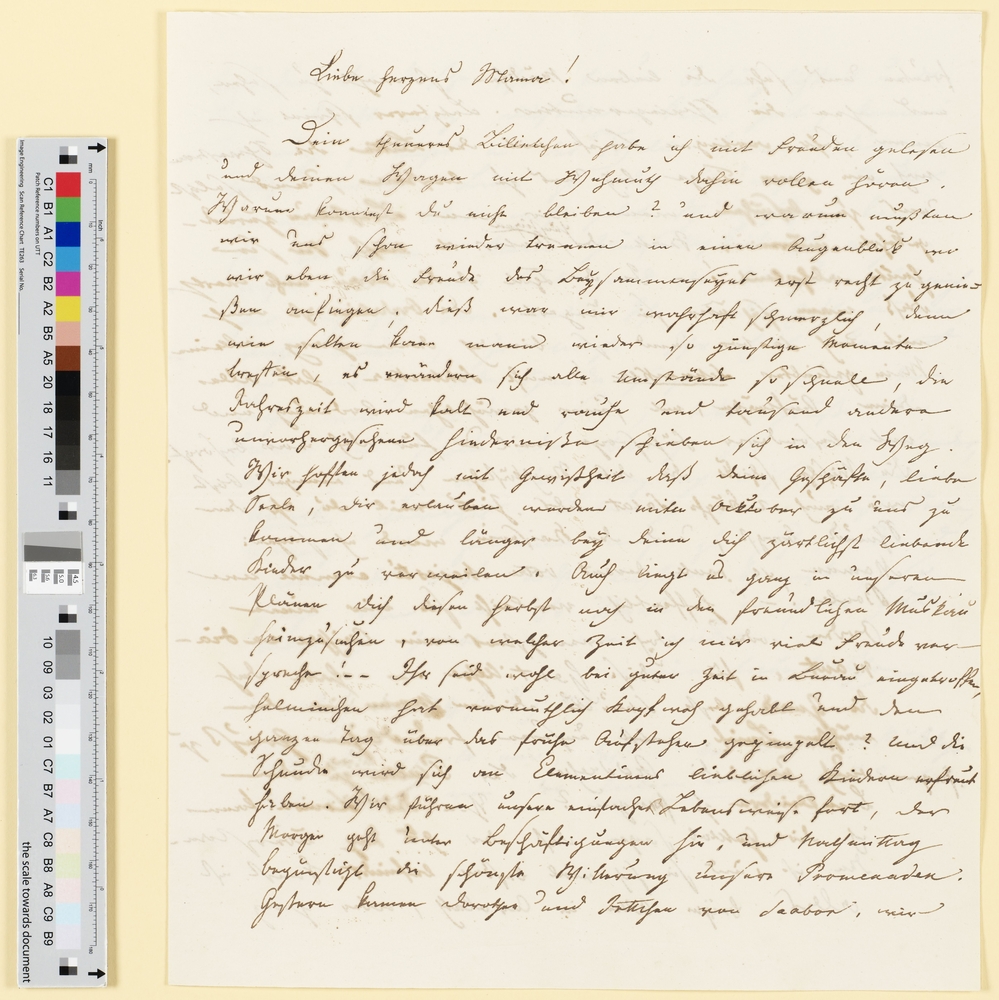 Liebe herzens Mama!
Dein theueres Billietchen habe ich mit Freuden gelesen
und deinen Wagen mit Wehmuth dahin rollen hören.
Warum konntest du nicht bleiben? und warum mußten
wir uns schon wieder trennen in einen Augenblick wo
wir eben die Freude des Beysammenseyns erst recht zu genie=
ßen anfingen, dieß war mir wahrhaft schmerzlich, denn
wie selten kann mann wieder so günstige Momente
treffen, es verändern sich alle Umstände so schnell, die
Jahreszeit wird kalt und rauhe und tausend andere
unvorhergesehene Hindernisse schieben sich in den Weg.
Wir hoffen jedoch mit Gewißheit daß deine Geschäfte, liebe
Seele, dir erlauben werden mitte Ocktober zu uns zu
kommen und länger bey deine dich zärtlichst liebende
Kinder zu verweilen. Auch liegt es ganz in unseren
Plänen dich diesen Herbst noch in den freundlichen Muskau
heimzusuchen, von welcher Zeit ich mir viel Freude ver-
spreche!-- Ihr seid wohl bei guter Zeit in Bunzlau eingetroffen,
Helminchen hat vermuthlich Kopfweh gehabt und den
ganzen Tag über das frühe Aufstehen gepimpelt? Und die
Schunke wird sich an Clementinens lieblichen Kindern erfreut
haben. Wir führen unsere einfache Lebensweise fort, der
Morgen geht unter Beschäftigungen hin, und Nachmittag
begünstigt die schönste Witterung unsere Promenaden.
Gestern kamen Dorothee und Jettchen von Saabor, wir